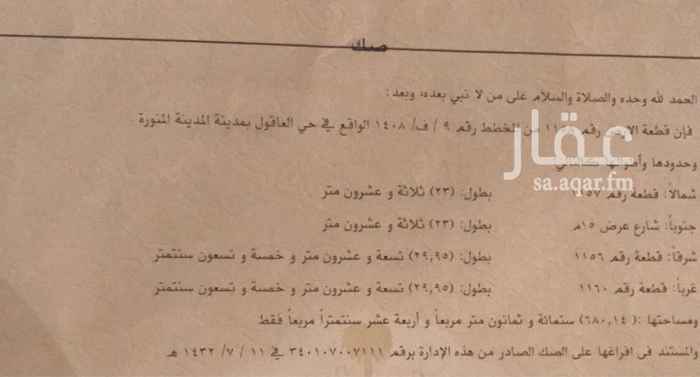 صك
الحمد لله وحده والصلاة والسلام على من لا نبي بعده، وبعد:
فإن قطعة الارض رقم من المخطط رقم ٩ / ف/ ١٤٠٨ الواقع في حي العاقول بمدينة المدينة المنورة .
وحدودها وأطوالها كالتالي
شمالاً: قطعة رقم ١١٥٧ بطول: (٢٣) ثلاثة و عشرون متر
جنوباً: شارع عرض ١٥م بطول: (٢٣) ثلاثة و عشرون متر
شرقاً: قطعة رقم ١١٥٦ بطول: (٢٩,٩٥) تسعة و عشرون متر و خمسة و تسعون سنتمتر
غرباً: قطعة رقم ١١٦٠ بطول: (٢٩,٩٥) تسعة و عشرون متر و خمسة و تسعون سنتمتر
ومساحتها :( ٦٨٠,١٤) ستمائة و ثمانون متر مربعاً و أربعة عشر سنتمتراً مربعاً فقط
والمستند في افراغها على الصك الصادر من هذه الإدارة برقم ٣٤٠١٠٧٠٠٧١١١ في ١١ / ٧ / ١٤٣٢ هـ
عقار
sa.aqar.fm